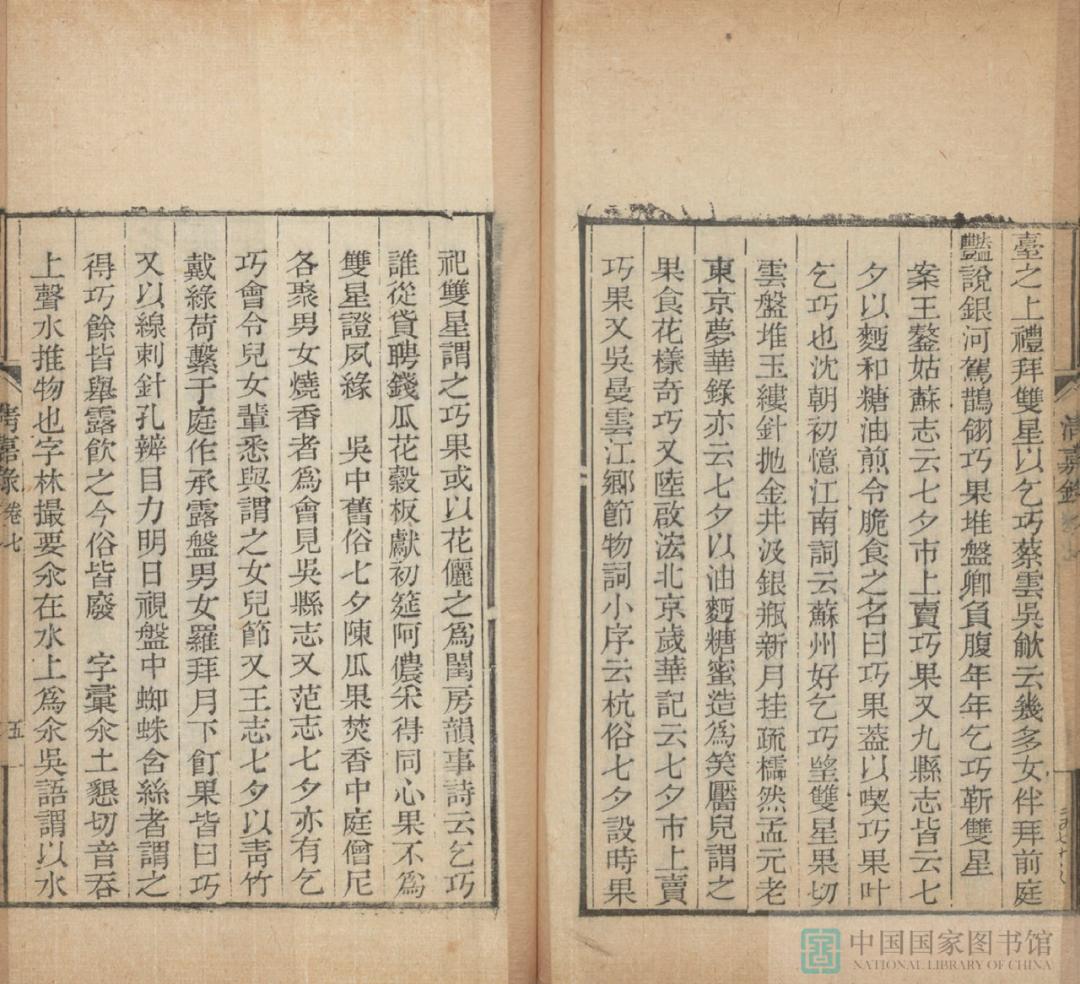 臺之上禮拜雙星以乞巧蔡雲吳歈云幾多女伴拜前庭
豔說銀河駕鵲翎巧果堆盤卿負腹年年乞巧靳雙星
案王鏊姑蘇志云七夕市上賣巧果又九縣志皆云七
夕以麪和糖油煎令脆食之名曰巧果葢以喫巧果叶
乞巧也沈朝初憶江南詞云蘇州好乞巧望雙星果切
雲盤堆玉縷針拋金井汲銀瓶新月挂疏櫺然孟元老
東京夢華錄亦云七夕以油麪糖蜜造爲笑靨兒謂之
果食花樣奇巧又陸啟浤北京歲華記云七夕市上賣
巧果又吳曼雲江鄉節物詞小序云杭俗七夕設時果
清嘉錄
祀雙星謂之巧果或以花儷之爲閨房韻事詩云乞巧
誰從貸聘錢瓜花穀板獻初筵阿儂釆得同心果不爲
雙星證夙緣 吳中舊俗七夕陳瓜果焚香中庭僧尼
各聚男女燒香者爲會見吳縣志又范志七夕亦有乞
巧會令兒女輩悉與謂之女兒節又王志七夕以靑竹
戴綠荷繫于庭作承露盤男女羅拜月下飣果皆曰巧
又以線刺針孔辨目力明日視盤中蜘蛛含絲者謂之
得巧餘皆舉露飮之今俗皆廢 字彙氽土懇切音吞
上聲水推物也字林撮要氽在水上爲氽吳語謂以水
清嘉錄 卷七
五
中国国家图书馆
NATIONAL LIBRARY OF CHINA